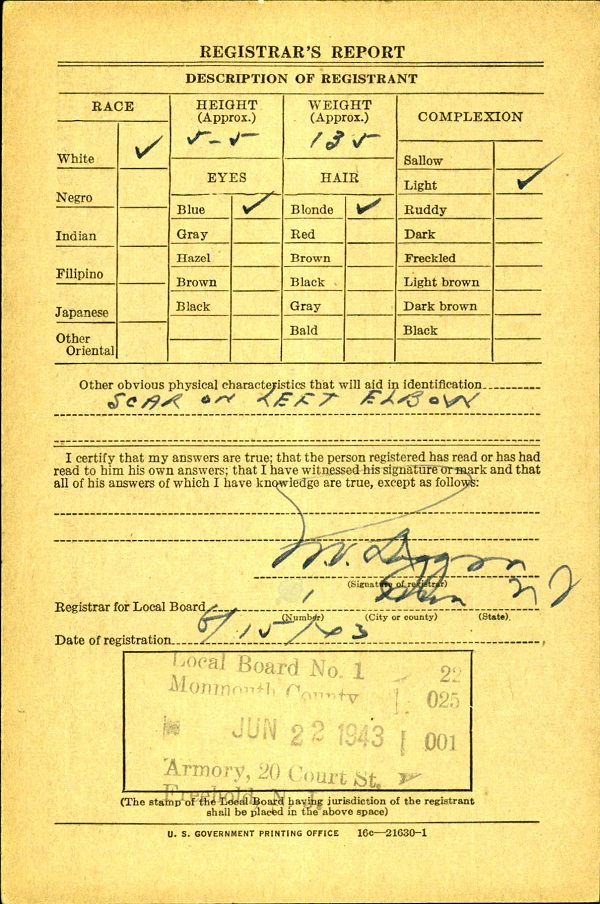 REGISTRAR'S REPORT
DESCRIPTION OF REGISTRANT
RACE
White ✓
Negro
Indian
Filipino
Japanese
Other
Oriental
HEIGHT
(Approx.)
5-5
WEIGHT
(Approx.)
135
EYES
Blue ✓
Gray
Hazel
Brown
Black
HAIR
Blonde ✓
Red
Brown
Black
Gray
Bald
COMPLEXION
Sallow
Light ✓
Ruddy
Dark
Freckled
Light brown
Dark brown
Black
Other obvious physical characteristics that will aid in identification
SCAR ON LEFT ELBOW
I certify that my answers are true; that the person registered has read or has had
read to him his own answers; that I have witnessed his signature or mark and that
all of his answers of which I have knowledge are true, except as follows:
(Signature of registrar)
Registrar for Local Board 1
(Number) (City or county) (State)
Date of registration 6/15/43
Local Board No. 1 22
Monmouth County 025
JUN 22 1943 001
Armory, 20 Court St.
Freehold, N. J.
(The stamp of the Local Board having jurisdiction of the registrant
shall be placed in the above space)
U. S. GOVERNMENT PRINTING OFFICE 16c—21630-1